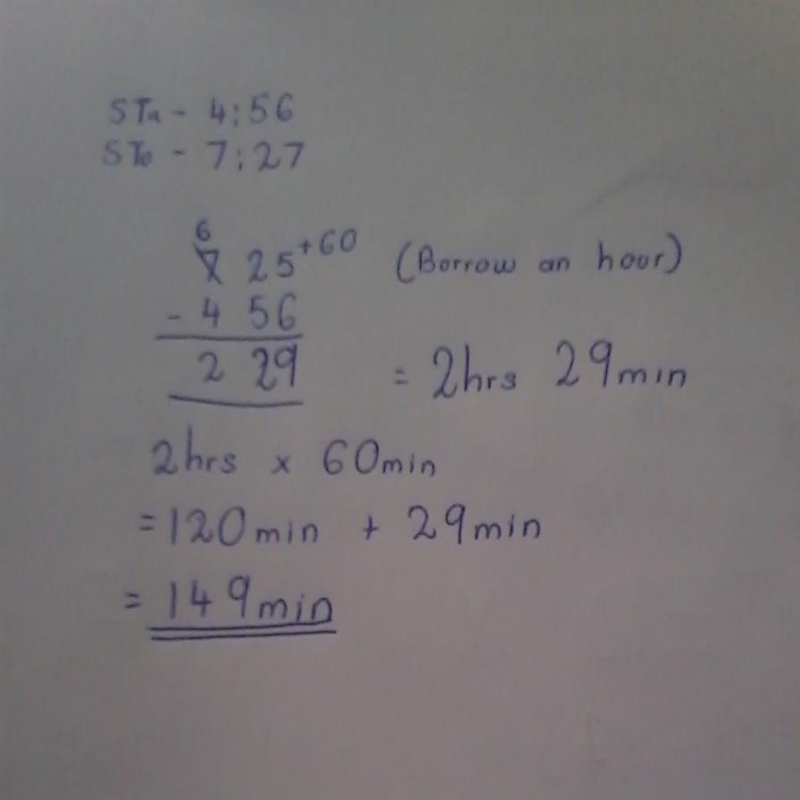 STa - 4:56
STo - 7:27
6
7 25 +60 (Borrow an hour)
- 4 56
2 29 = 2hrs 29min
2hrs x 60min
= 120min + 29min
= 149min